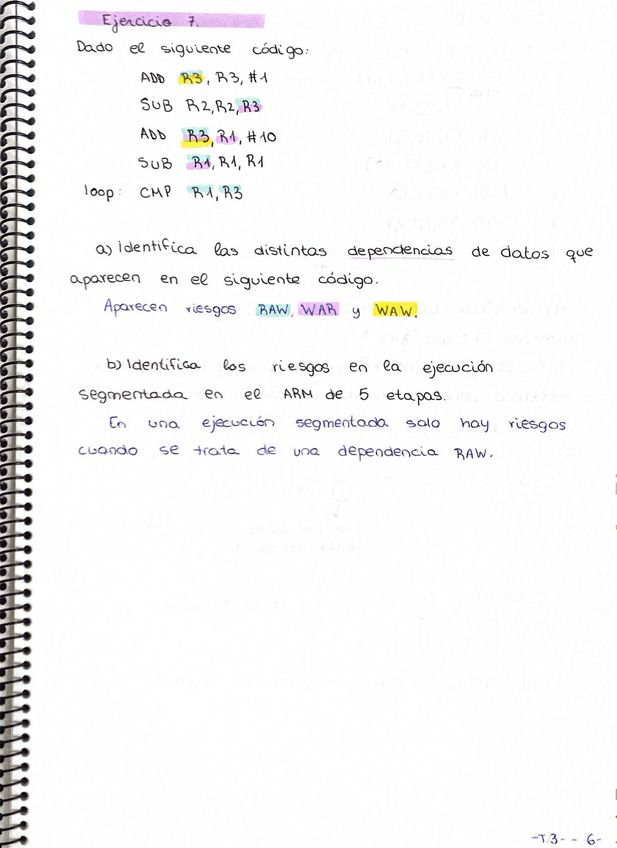 Ejercicio 7.
Dado el siguiente código:
ADD R3, R3, #1
SUB R2, R2, R3
ADD R3, R1, #10
SUB R1, R1, R1
loop: CMP R1, R3
a) Identifica las distintas dependencias de datos que
aparecen en el siguiente código.
Aparecen riesgos RAW, WAR y WAW.
b) Identifica los riesgos en la ejecución
segmentada en el ARM de 5 etapas.
En una ejecución segmentada solo hay riesgos
cuando se trata de una dependencia RAW.
-T3-- 6-